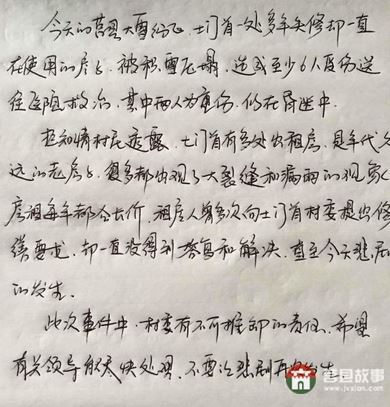 今天的莒县大雪纷飞，土门首一处多年失修却一直
在使用的房屋，被积雪压塌，造成至少6人受伤送
往医院救治，其中两人为重伤，仍在昏迷中.
据知情村民透露，土门首有多处出租房，是年代久
远的老房屋，多都出现了大裂缝和漏雨的现象，
房租每年都会长价，租房人曾多次向土门首村委提出修
缮要求，却一直没得到答复和解决，直至今天悲剧
的发生.
此次事件中，村委有不可推卸的责任，希望
有关领导能尽快处理，不要让悲剧再发生.
莒县故事
www.jvxian.com